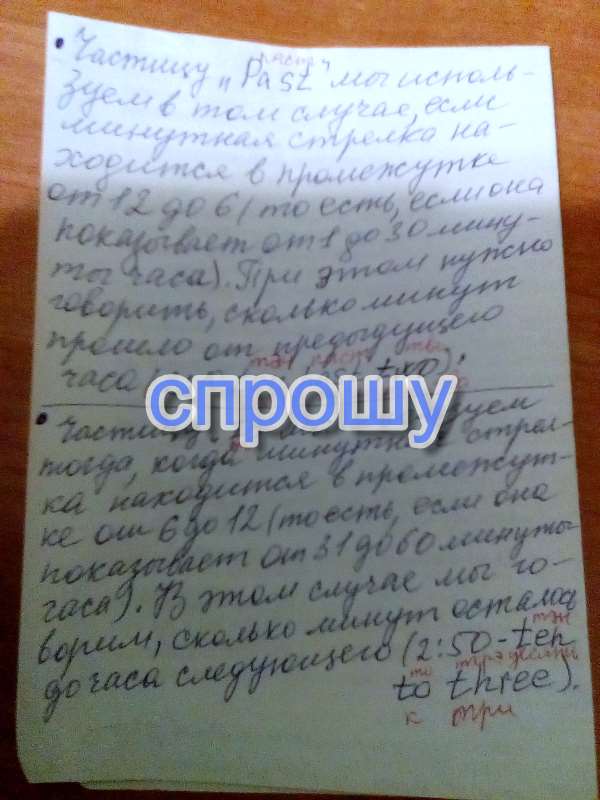 паст
• Частицу „Past" мы исполь-
зуем в том случае, если
минутная стрелка на-
ходится в промежутке
от 12 до 6 (то есть, если она
показывает от 1 до 30 мину-
ты часа). При этом нужно
говорить, сколько минут
прошло от предыдущего
тэн паст ту
часа two);
спрошу
• Частицу зуем
тогда, когда минутная стрел-
ка находится в промежут-
ке от 6 до 12 (то есть, если она
показывает от 31 до 60 минуты
часа). В этом случае мы го-
ворим, сколько минут осталось
тэн
до часа следующего (2:50-ten
то
to three).
к три